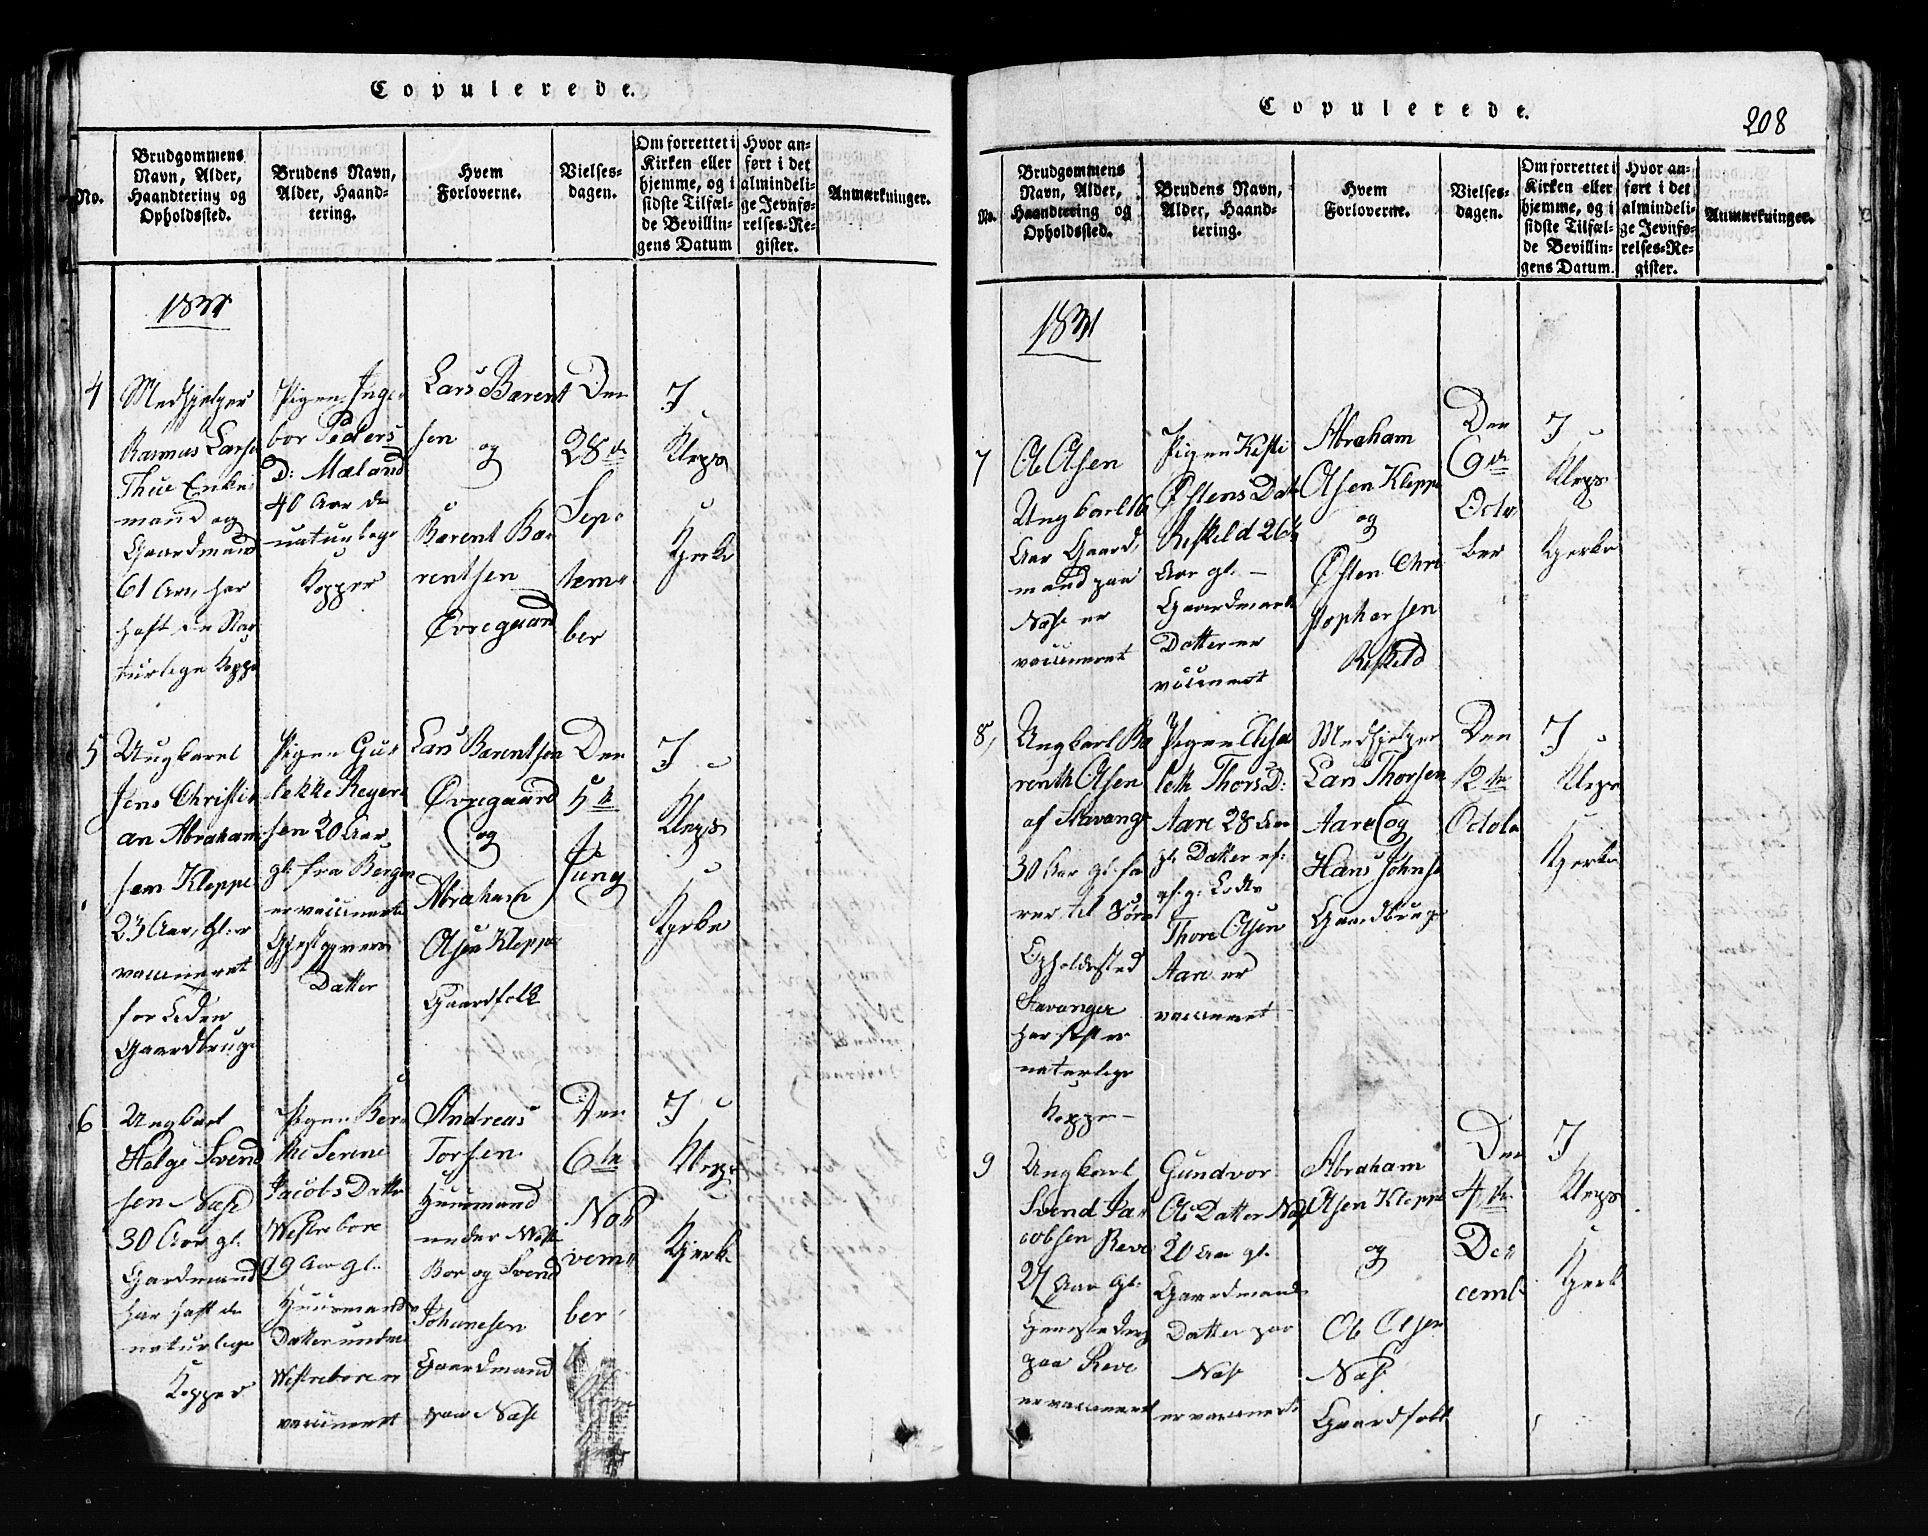 Copulerede.
No.
Brudgommens
Navn, Alder,
Haandtering og
Opholdssted.
Brudens Navn,
Alder, Haand-
tering.
Hvem
Forloverne.
Vielses-
dagen.
Om forrettet i
Kirken eller
hjemme, og i
sidste Tilfæl-
de Bevillin-
gens Datum
Hvor an-
ført i det
almindeli-
ge Jevnfø-
relses-Re-
gister.
Anmærkninger.
4
Medhjelper
Rasmus Larse
Thue Enke
mand og
Gaardmand
61 Aar, har
haft de Na
turlige Koppe
Pigen Inge
bor Peders
D: Mæland
40 Aar de
naturlege
Kopper
Lars Barent
sen
og
Barent Ba
rentsen
Øvregaard
Den
28de
Sep
tem
ber
I
Klepp
Kjerke
5
Ungkarl
Jens Christi
an Abraham
sen Kleppe
23 Aar, gl: er
vaccineret
for Eden
Gaardbruge
Pigen Gu
lekke Reyer
sen 20 Aar
gl: fra Bergen
er vaccinert
Datter
Lars Barentsen
Øvregaard
og
Abraham
Olsen Kleppe
Gaardfolk
Den
5te
Juny
I
Klepp
Kjerke
6
Ungkarl
Helge Svend
sen Næse
30 Aar gl.
Gardmand
har haft de
naturlige
Kopper
Pigen Ber
the Serine
Jacobs Datte
Westrebore
19 Aar gl.
Huusmands
Datter under
Westrebore er
vaccinert
Andreas
Torsen
Huusmand
under Westre
Bor og Svend
Johanesen
Gaardmand
paa Næse
Den
6te
No
vem
ber
I
Klepp
Kjerke
Copulerede.
208
No.
Brudgommens
Navn, Alder,
Haandtering og
Opholdssted.
Brudens Navn,
Alder, Haand-
tering.
Hvem
Forloverne.
Vielses-
dagen.
Om forrettet i
Kirken eller
hjemme, og i
sidste Tilfæl-
de Bevillin-
gens Datum.
Hvor an-
ført i det
almindeli-
ge Jevnfø-
relses-Re-
gister.
Anmærkninger.
1831
7
Ole Olsen
Ungkarl
Aar Gaard
mand paa
Næse er
vaccineret
Pigen
Østens Dat
Reskeld 26
Aar gl.
Gaardmands
Datter er
vaccinert
Abraham
Olsen Kleppe
og
Østen Chri
stophersen
Reskeld
Den
9de
Octo
ber
I
Klepp
Kjerke
8,
Ungkarl Ba
renth Olsen
af Stavang
30 Aar gl. fa
rer til Søes
Opholdssted
Stavanger
har haft er
naturlige
Kopper
Pigen Elisa
beth Thors D:
Aare 28 Aar
gl. Datter af
Thore Olsen
Aare er
vaccineret
Medhjelper
Lars Thorsen
Aare og
Hans Johns
Gaardbruge
Den
12te
Octob
I
Klepp
Kjerke
9
Ungkarl
Svend Ja
cobsen Reve
27 Aar gl.
paa Reve
er vaccinert
Gundvor
Ols Datter Næse
20 Aar gl.
Gaardmands
Datter paa
Næse
er vaccinert
Abraham
Olsen Kleppe
og
Ole Olsen
Næse
Gaardfolk
Den
4de
De
cemb
I
Klepp
Kjerk